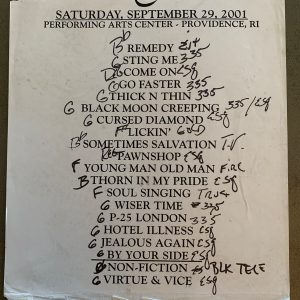 SATURDAY, SEPTEMBER 29, 2001
PERFORMING ARTS CENTER - PROVIDENCE, RI
Bb REMEDY
G STING ME 335
D COME ON ESQ
G GO FASTER 335
G THICK N THIN 335
G BLACK MOON CREEPING 335/ESQ
G CURSED DIAMOND ESQ
F FLICKIN' GOLD
Bb SOMETIMES SALVATION T.V.
PAWNSHOP ESQ
F YOUNG MAN OLD MAN FIRE
B THORN IN MY PRIDE ESQ
F SOUL SINGING TRUSS
G WISER TIME 335
G P-25 LONDON 335
G HOTEL ILLNESS ESQ
G JEALOUS AGAIN ESQ
G BY YOUR SIDE ESQ
NON-FICTION BLK TELE
G VIRTUE & VICE ESQ